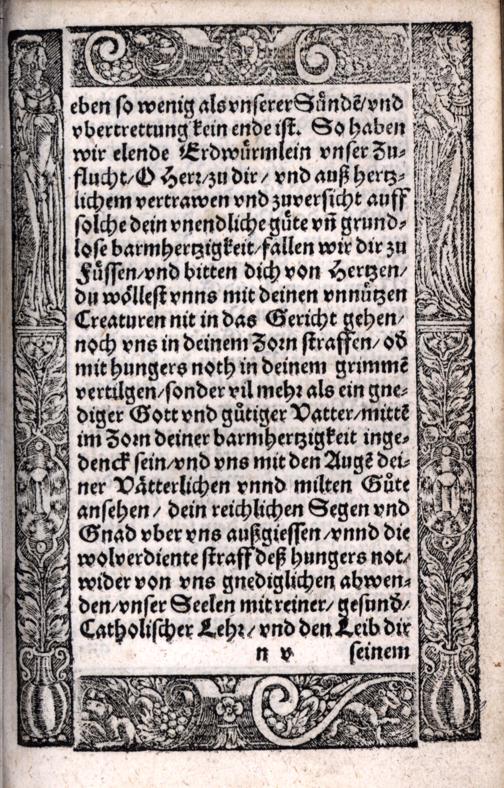 eben so wenig als vnserer Sündẽ/vnd
vbertrettung kein ende ist. So haben
wir elende Erdwürmlein vnser Zu-
flucht/O Herr/zu dir/ vnd auß hertz-
lichem vertrawen vnd zuversicht auff
solche dein vnendliche güte vñ grund-
lose barmhertzigkeit/fallen wir dir zu
Füssen/vnd bitten dich von Hertzen/
du wöllest vnns mit deinen vnnützen
Creaturen nit in das Gericht gehen/
noch vns in deinem Zorn straffen/ od̃
mit hungers noth in deinem grimmẽ
vertilgen/sonder vil mehr als ein gne-
diger Gott vnd gütiger Vatter/mittẽ
im Zorn deiner barmhertzigkeit inge-
denck sein/vnd vns mit den Augẽ dei-
ner Vätterlichen vnnd milten Güte
ansehen/ dein reichlichen Segen vnd
Gnad vber vns außgiessen/vnnd die
wolverdiente straff deß hungers not/
wider von vns gnediglichen abwen-
den/vnser Seelen mit reiner/ gesund/
Catholischer Lehr/ vnd den Leib dir
n v seinem